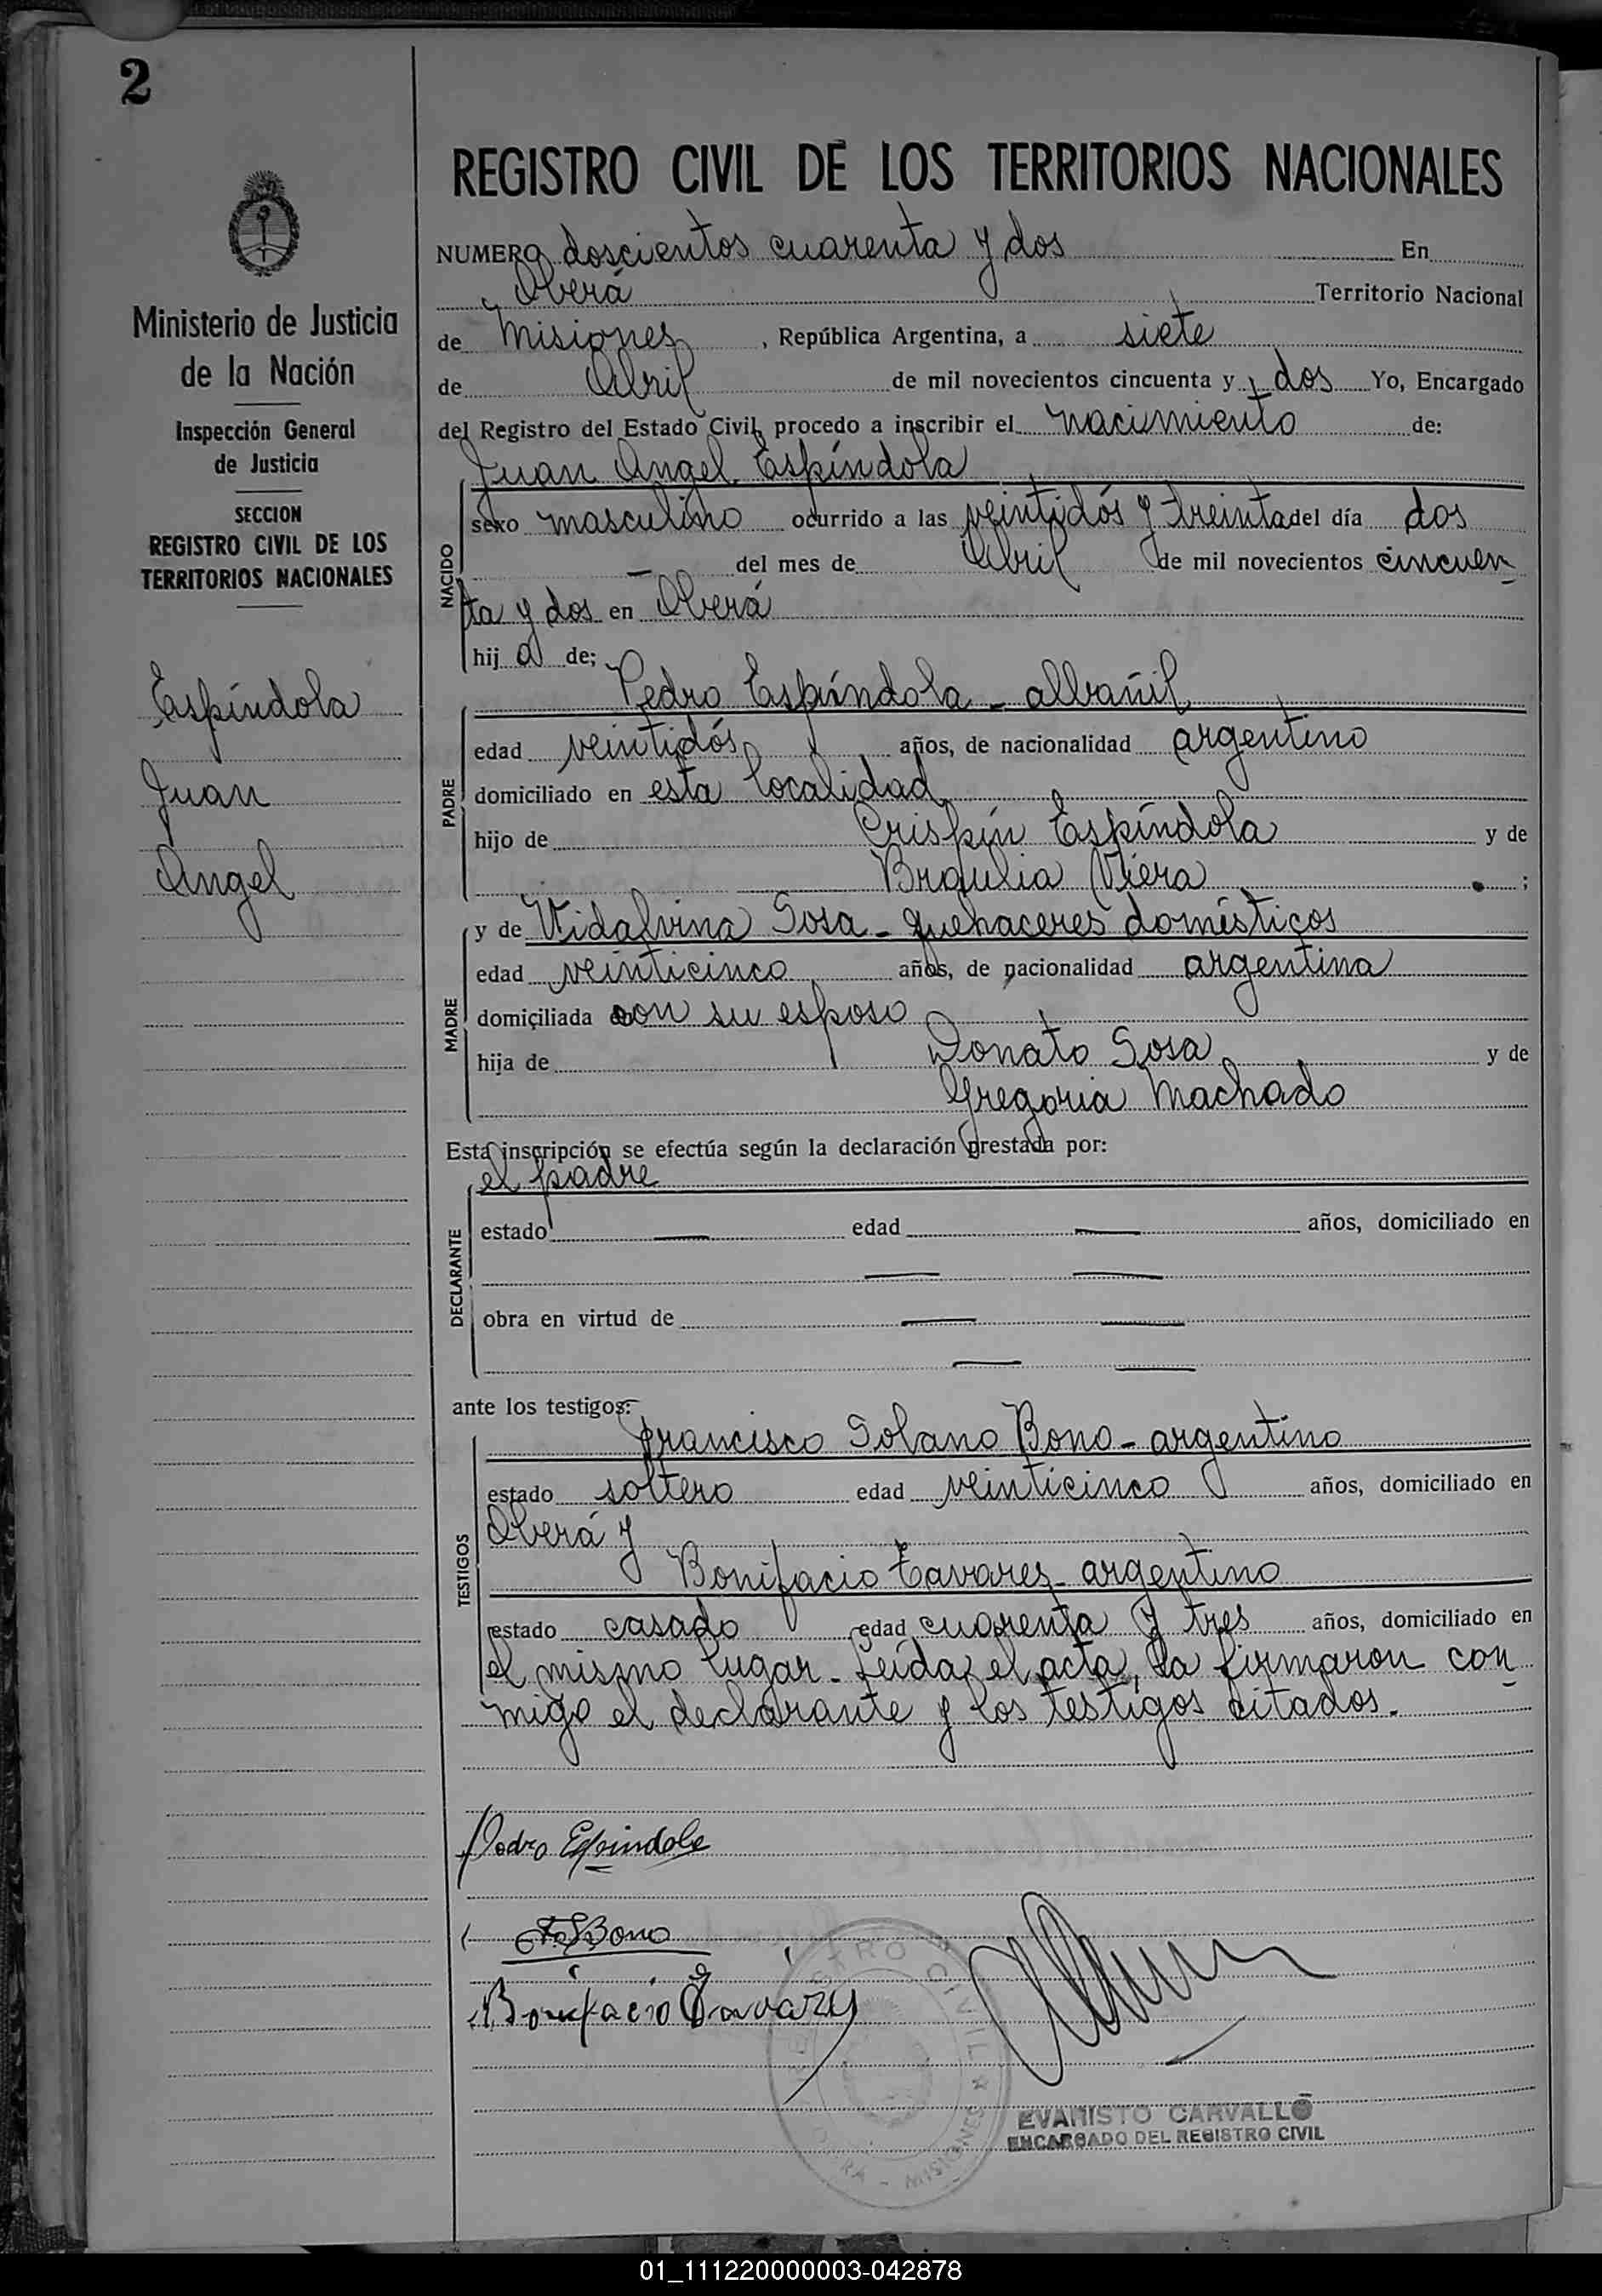 2
Ministerio de Justicia
de la Nación
Inspección General
de Justicia
SECCION
REGISTRO CIVIL DE LOS
TERRITORIOS NACIONALES
Espíndola
Juan
Angel
REGISTRO CIVIL DE LOS TERRITORIOS NACIONALES
NUMERO doscientos cuarenta y dos En
Oberá Territorio Nacional
de Misiones, República Argentina, a siete
de Abril de mil novecientos cincuenta y dos Yo, Encargado
del Registro del Estado Civil, procedo a inscribir el nacimiento de:
Juan Angel Espíndola
NACIDO
sexo masculino ocurrido a las veintidós y treinta del día dos
— del mes de Abril de mil novecientos cincuen
ta y dos en Oberá
hij o de;
Pedro Espíndola - albañil
PADRE
edad veintidós años, de nacionalidad argentino
domiciliado en esta localidad
hijo de Crispín Espíndola y de
Braulia Viera ;
y de Vidalvina Sosa - quehaceres domésticos
MADRE
edad veinticinco años, de nacionalidad argentina
domiciliada con su esposo
hija de Donato Sosa y de
Gregoria Machado
Esta inscripción se efectúa según la declaración prestada por:
el padre
DECLARANTE
estado — edad — años, domiciliado en
— —
obra en virtud de — —
— —
ante los testigos:
Francisco Solano Bono - argentino
TESTIGOS
estado soltero edad veinticinco años, domiciliado en
Oberá y
Bonifacio Tavares - argentino
estado casado edad cuarenta y tres años, domiciliado en
el mismo lugar - Leída el acta, la firmaron con
migo el declarante y los testigos citados.
Pedro Espindola
F. S. Bono
Bonifacio Tavarez
REGISTRO CIVIL
OBERA - MISIONES
EVARISTO CARVALLO
ENCARGADO DEL REGISTRO CIVIL
01_111220000003-042878